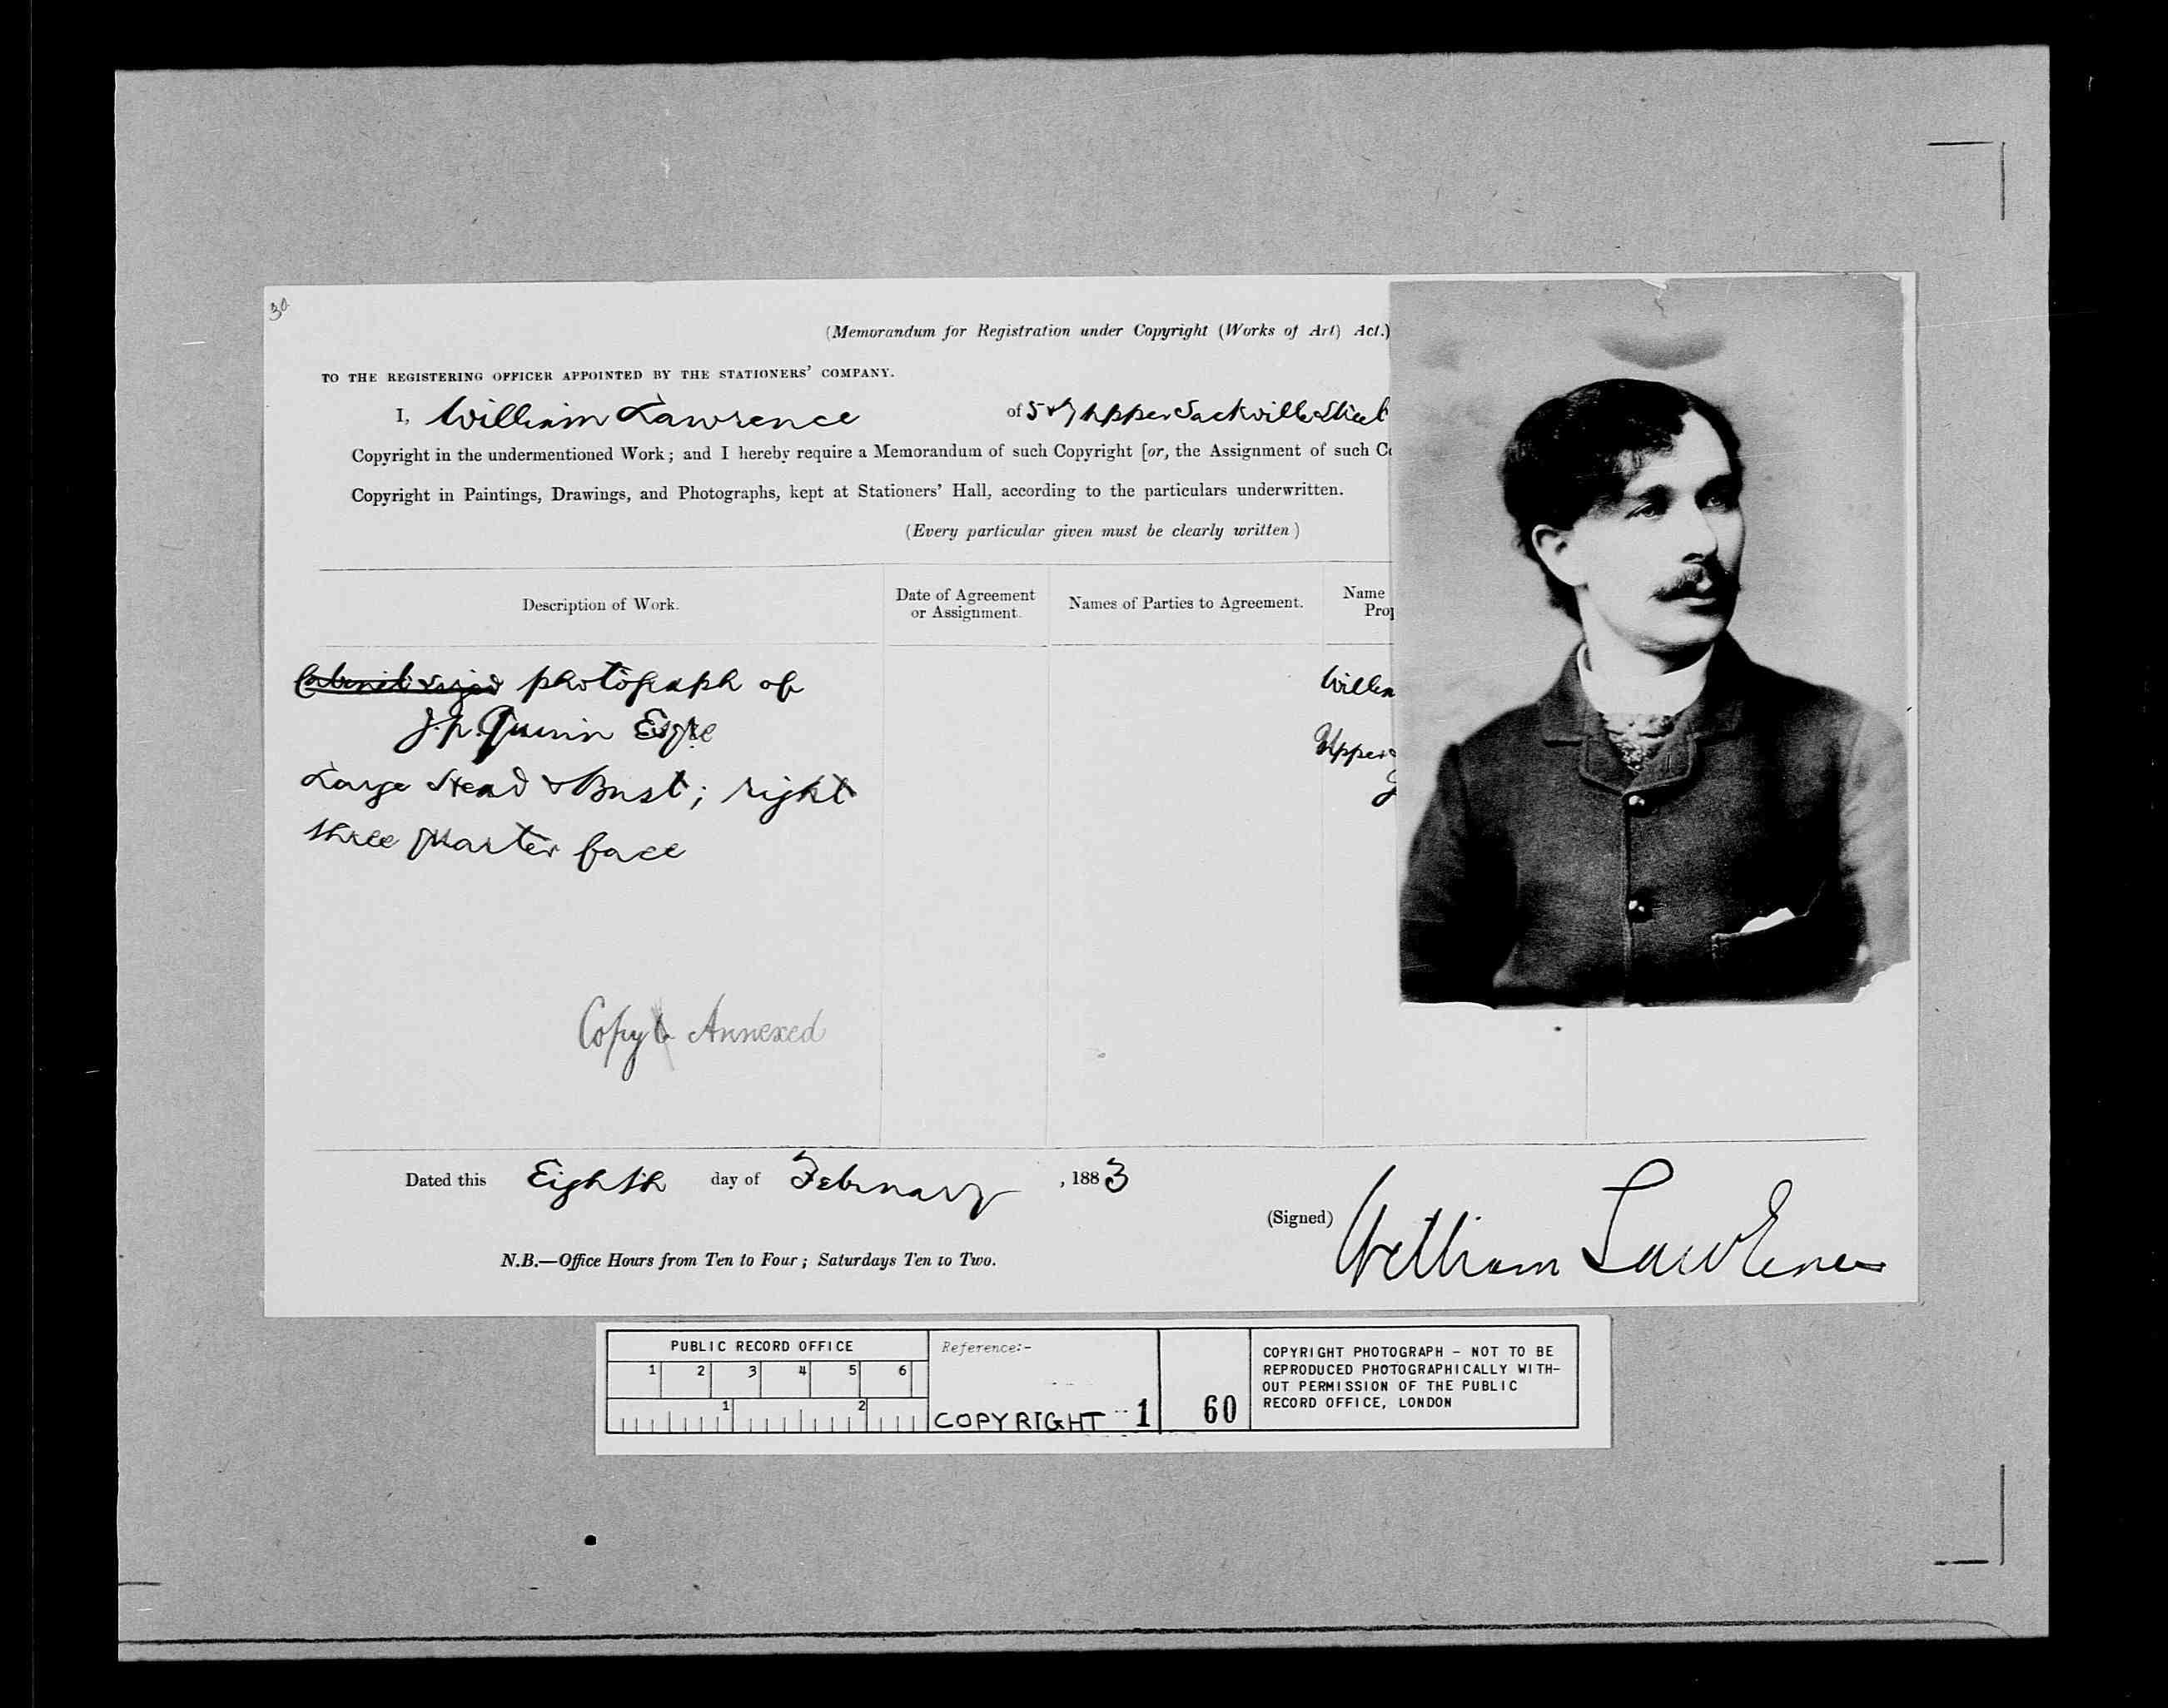 30
(Memorandum for Registration under Copyright (Works of Art) Act.)
TO THE REGISTERING OFFICER APPOINTED BY THE STATIONERS' COMPANY.
I, William Lawrence of 5 & 7 Upper Sackville Street
Copyright in the undermentioned Work; and I hereby require a Memorandum of such Copyright [or, the Assignment of such Co
Copyright in Paintings, Drawings, and Photographs, kept at Stationers' Hall, according to the particulars underwritten.
(Every particular given must be clearly written)
Description of Work.
Date of Agreement
or Assignment.
Names of Parties to Agreement.
Name
Prop
Cabinet sized photograph of
J.P. Quinn Esqre
Large Head & Bust; right
three quarter face
Willia
Upper
Copy Annexed
Dated this Eighth day of February, 1883
(Signed) William Lawrence
N.B.—Office Hours from Ten to Four; Saturdays Ten to Two.
PUBLIC RECORD OFFICE
1 2 3 4 5 6
1 2
Reference:-
COPYRIGHT 1
60
COPYRIGHT PHOTOGRAPH - NOT TO BE
REPRODUCED PHOTOGRAPHICALLY WITH-
OUT PERMISSION OF THE PUBLIC
RECORD OFFICE, LONDON